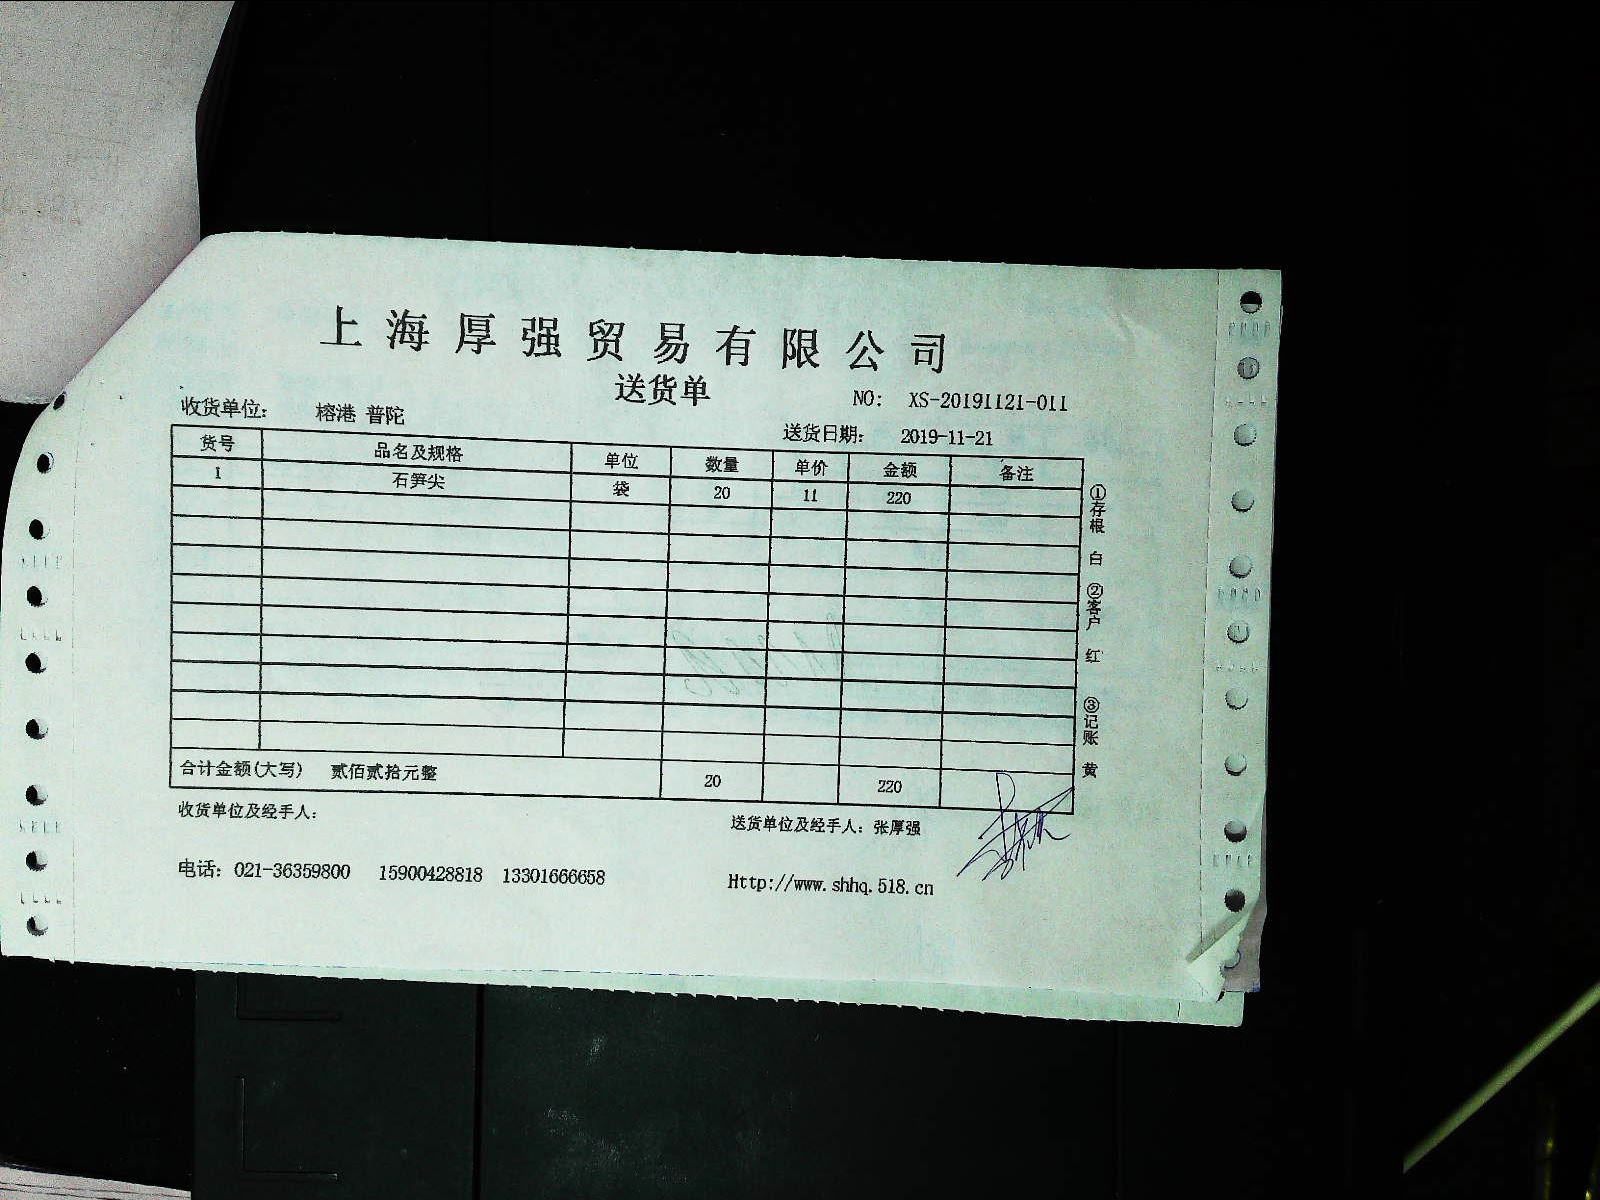 上海厚强贸易有限公司
送货单
NO: XS-20191121-011
收货单位: 榕港 普陀
送货日期: 2019-11-21
货号 品名及规格 单位 数量 单价 金额 备注
1 石笋尖 袋 20 11 220
合计金额(大写) 贰佰贰拾元整 20 220
①存根 白 ②客户 红 ③记账 黄
收货单位及经手人:
送货单位及经手人: 张厚强
电话: 021-36359800 15900428818 13301666658
Http://www.shhq.518.cn